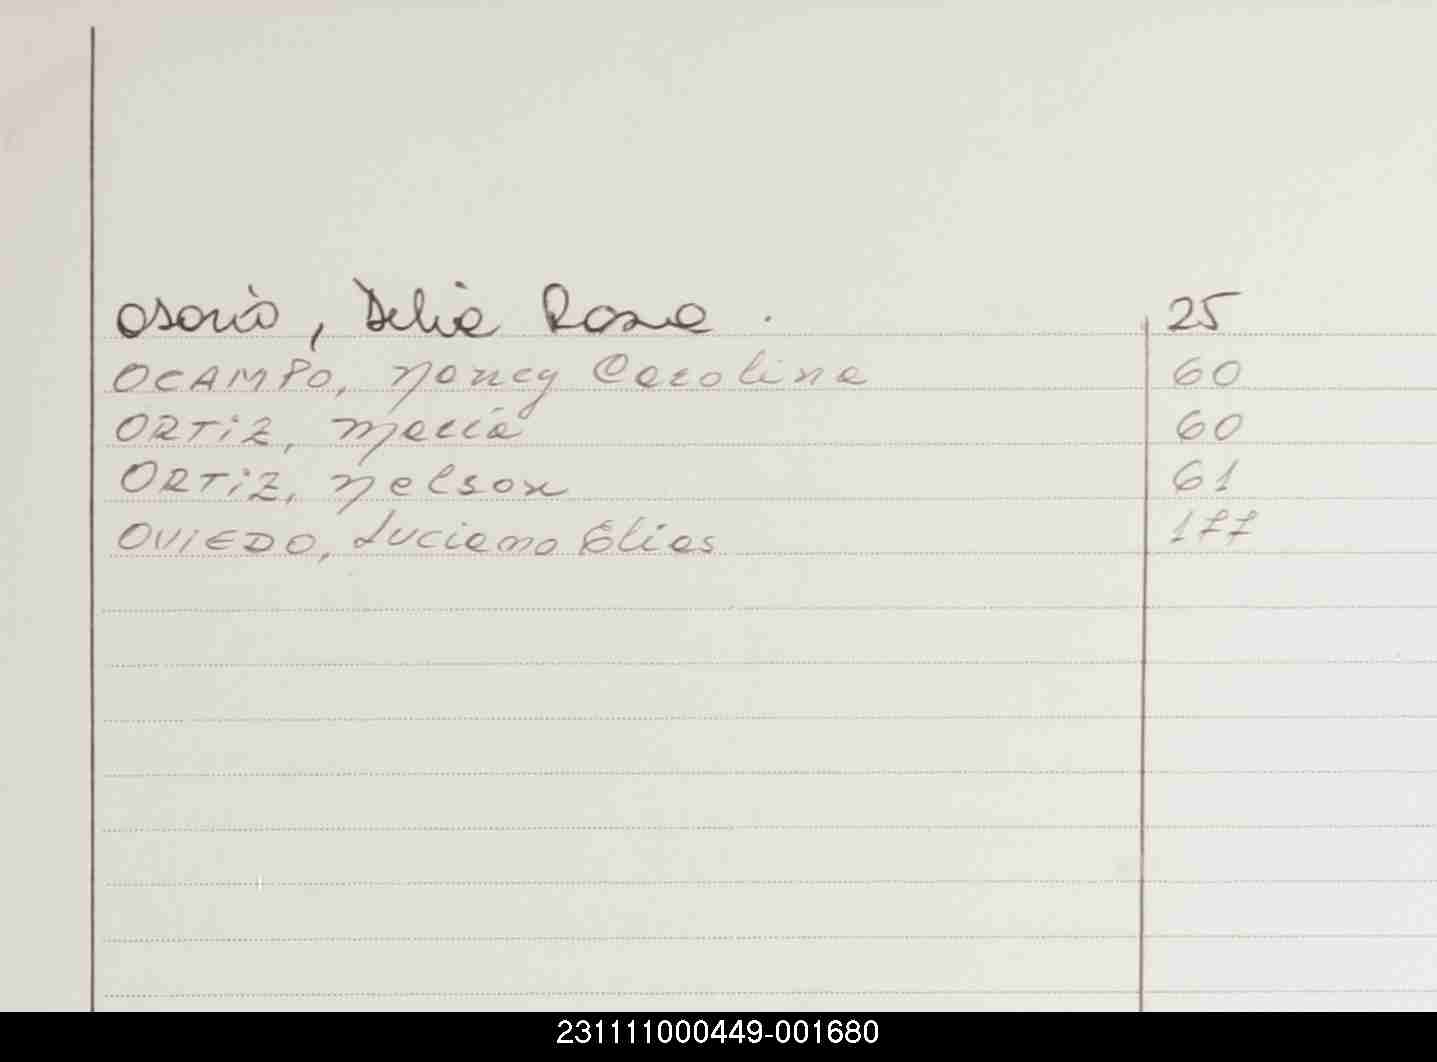 Osorio, Delia Rosa . 25
OCAMPO, Nancy Carolina 60
ORTiZ, María 60
ORTiZ, Nelson 61
OViEDO, Luciano Elias 177
231111000449-001680